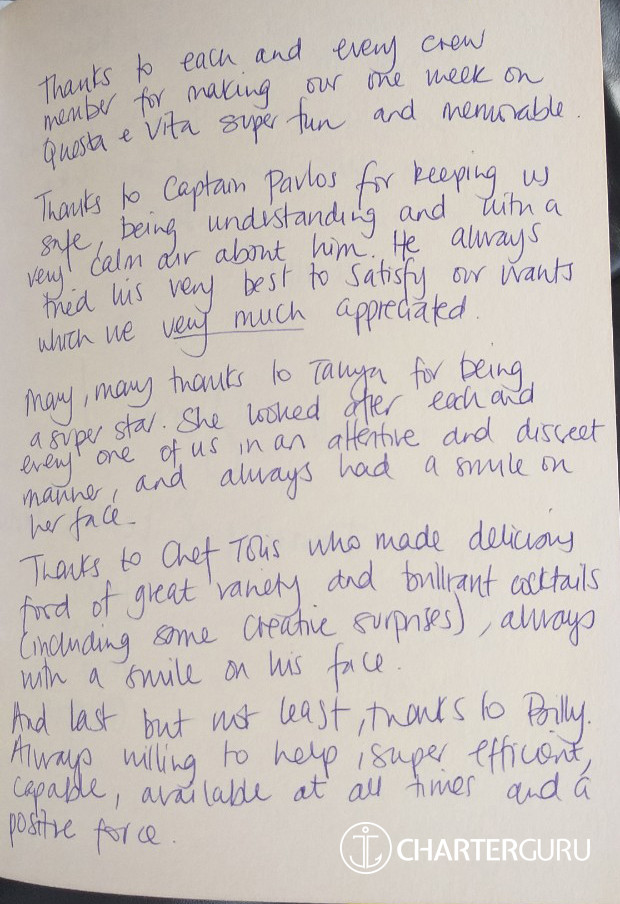 Thanks to each and every crew
member for making our one week on
Questa e Vita super fun and memorable.
Thanks to Captain Pavlos for keeping us
safe, being understanding and with a
very calm air about him. He always
tried his very best to satisfy our wants
which we very much appreciated.
Many, many thanks to Tanya for being
a super star. She looked after each and
every one of us in an attentive and discreet
manner, and always had a smile on
her face.
Thanks to Chef Tolis who made delicious
food of great variety and brilliant cocktails
(including some creative surprises), always
with a smile on his face.
And last but not least, thanks to Billy.
Always willing to help, super efficient,
capable, available at all times and a
positive force.
CHARTERGURU